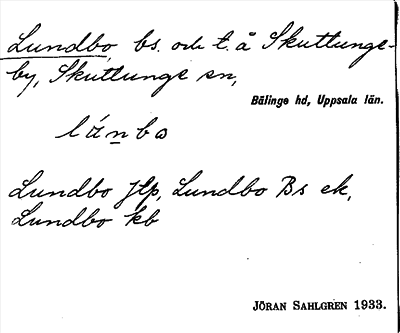 Lundbo, bs. och t. å Skuttunge-
by, Skuttunge sn,
Bälinge hd, Uppsala län.
Lundbo Jlp, Lundbo Bs ek,
Lundbo kb
JÖRAN SAHLGREN 1933.